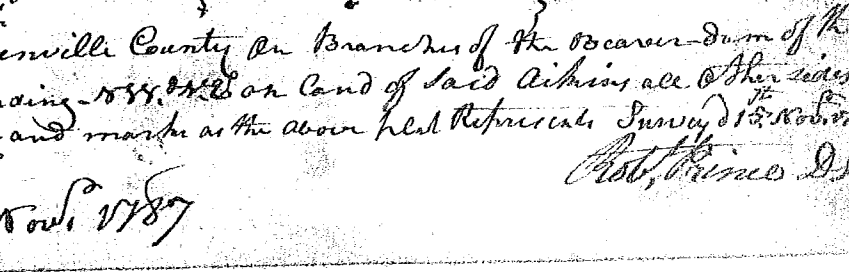 enville County On Branches of the Beaver-dam of the
nding on Land of Said Aikins all Other sides
and marks as the above plat Represents Survey'd 15th Novr.
Robt. Prince DS
Novr 1787